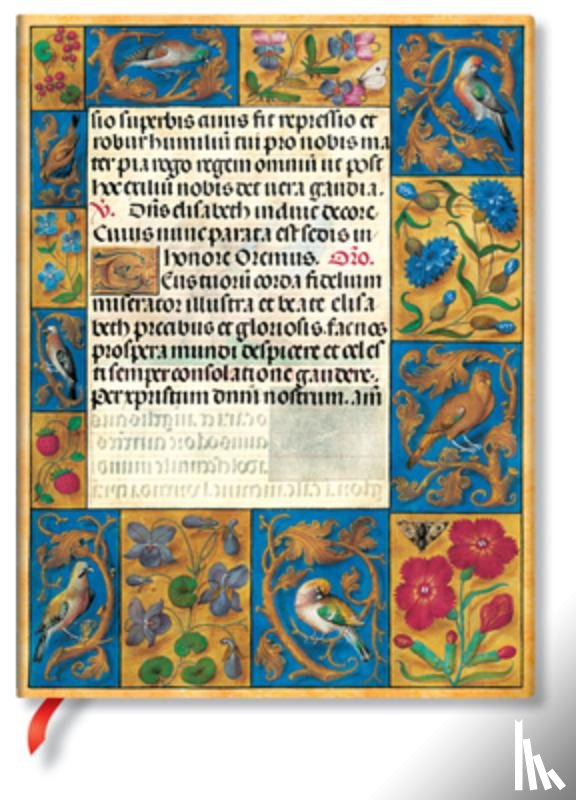 sio superbis cuius fit repressio et
robur humiliū tui pro nobis ma
ter pia rogo regem omniū ut post
hoc exiliū nobis det uera gaudia.
V. Dn̄s elisabeth induit decore
Cuius nunc parata est sedis in
honore Oremus. Orō.
Deus tuorū corda fidelium
miserator illustra et beate elisa
beth precabus et gloriosis. fac nos
prospera mundi despicere et celes
ti semper consolatione gaudere.
Per xpristum dnm̄ nostrum. am̄